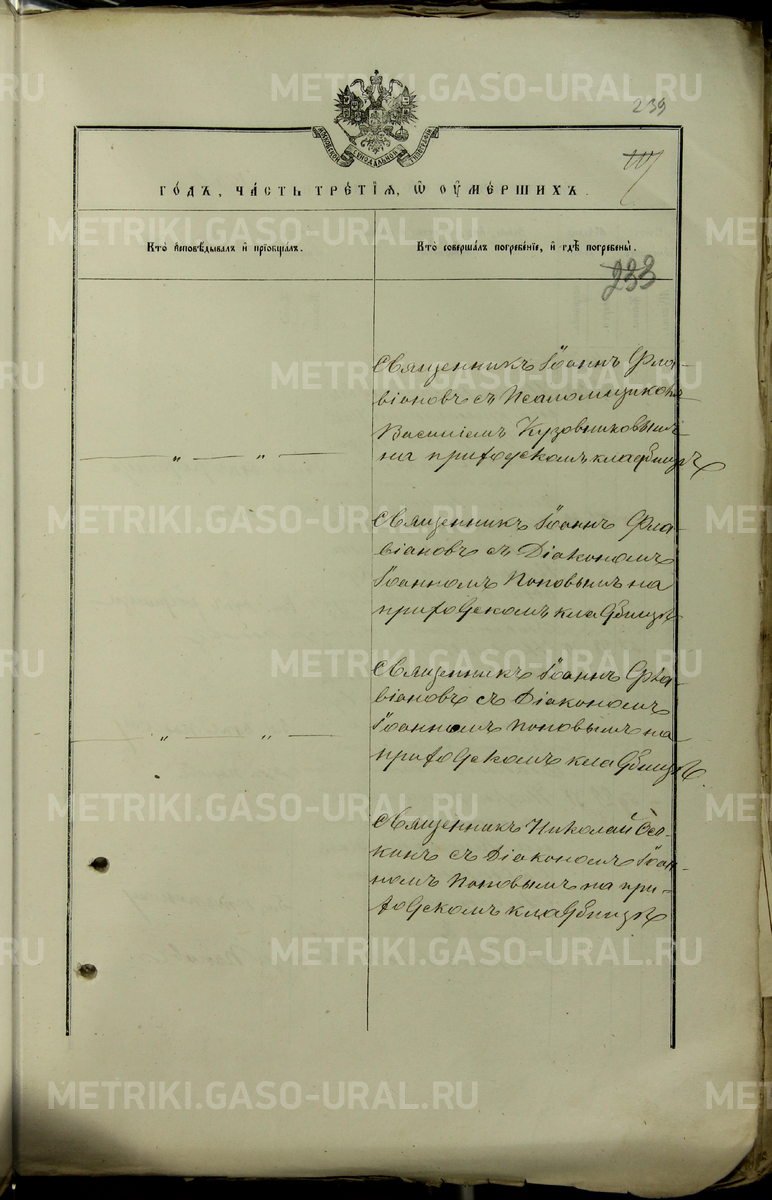 METRIKI.GASO-URAL.RU
239
МОСКОВСКОЙ СѴНОДАЛЬНОЙ ТИПОГРАФІИ
го́дъ, ча́сть тре́тїѧ, ѡ҆ ᲂу҆ме́ршихъ.
Кто̀ и҆сповѣ́дывалъ и҆ прїѡбща́лъ.
Кто̀ соверша́лъ погребе́нїе, и҆ гдѣ̀ погребены̀.
233
Священникъ Іоаннъ Фла-
віановъ съ Псаломщикомъ
Василіемъ Кузовниковымъ
на приходскомъ кладбищѣ
— „ — „ —
Священникъ Іоаннъ Фла-
віановъ съ Діакономъ
Іоанномъ Поповымъ на
приходскомъ кладбищѣ
Священникъ Іоаннъ Фла-
віановъ съ Діакономъ
Іоанномъ Поповымъ на
приходскомъ кладбищѣ
— „ — „ —
Священникъ Николай Осо-
кинъ съ Діакономъ Іоан-
номъ Поповымъ на при-
ходскомъ кладбищѣ